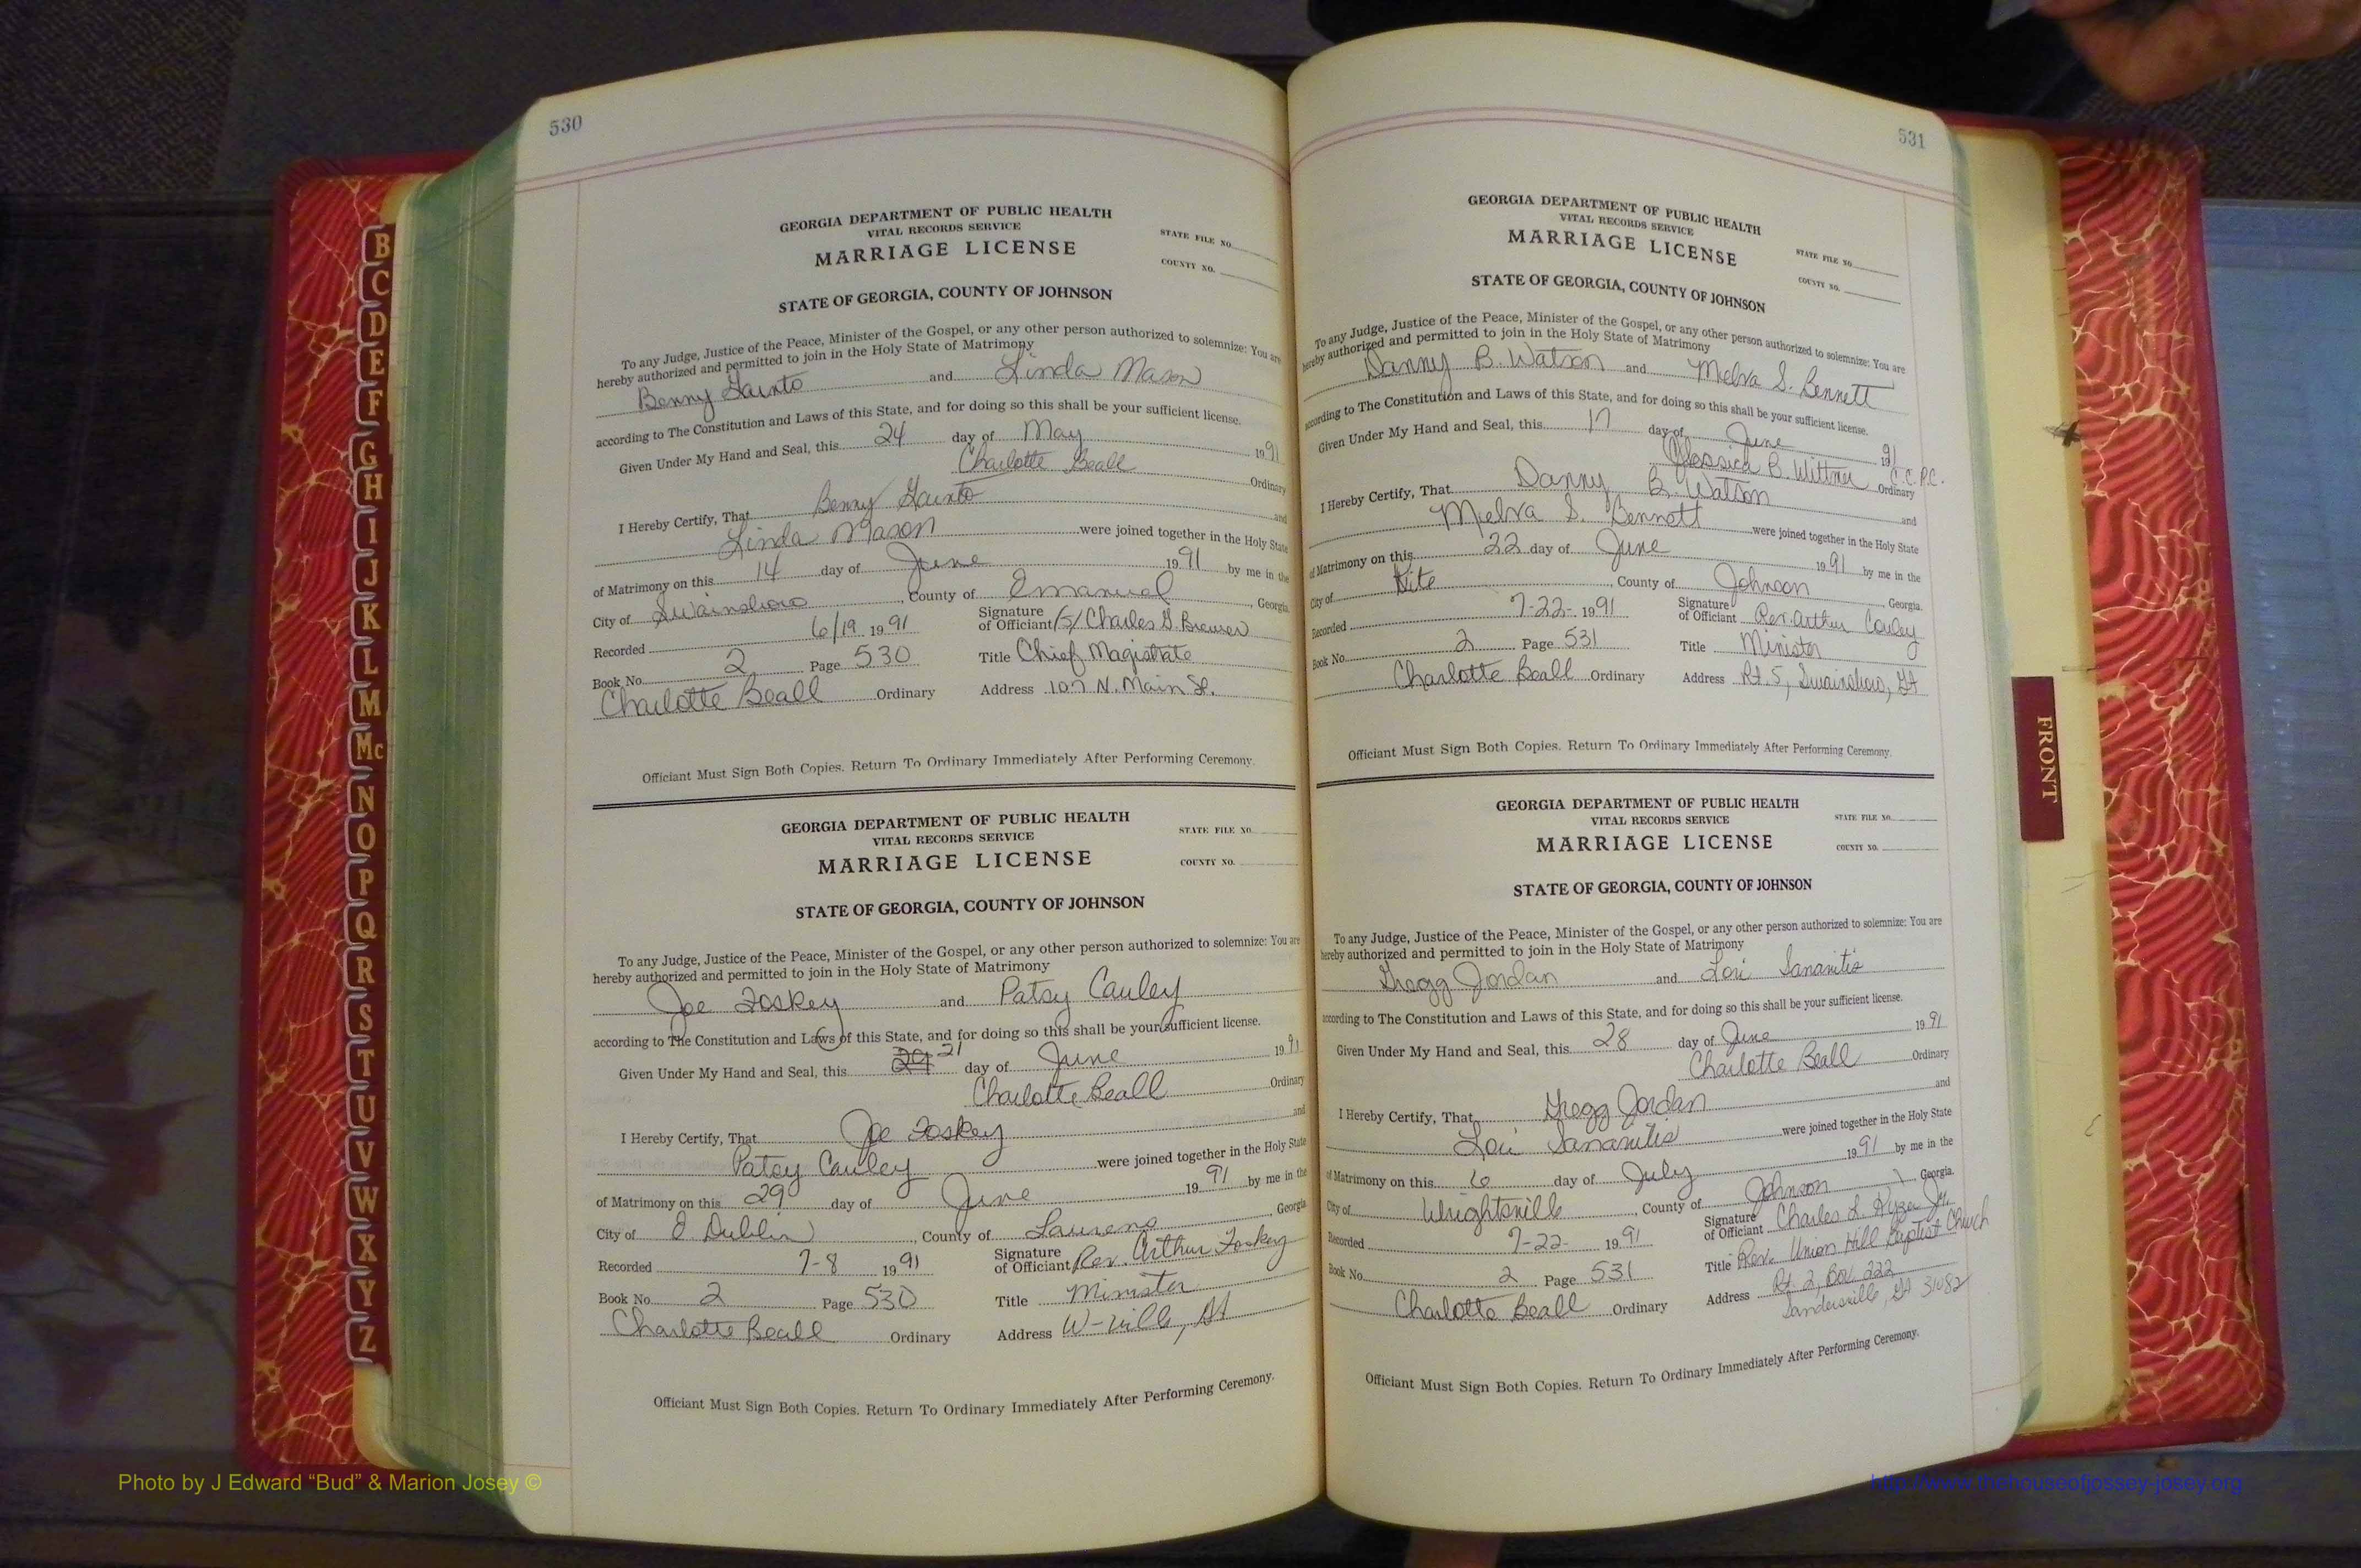 530
GEORGIA DEPARTMENT OF PUBLIC HEALTH
VITAL RECORDS SERVICE
MARRIAGE LICENSE
STATE FILE NO.
COUNTY NO.
STATE OF GEORGIA, COUNTY OF JOHNSON
To any Judge, Justice of the Peace, Minister of the Gospel, or any other person authorized to solemnize: You are
hereby authorized and permitted to join in the Holy State of Matrimony
Benny and Linda Mason
according to The Constitution and Laws of this State, and for doing so this shall be your sufficient license.
Given Under My Hand and Seal, this 24 day of May 1991
Charlotte Beall Ordinary
I Hereby Certify, That Benny and
Linda Mason were joined together in the Holy State
of Matrimony on this 14 day of June 1991 by me in the
City of Swainsboro, County of Emanuel, Georgia
Recorded 6/19 1991 Signature of Officiant /s/ Charles G. Brewer
Book No. 2 Page 530 Title Chief Magistrate
Charlotte Beall Ordinary Address 107 N. Main St.
Officiant Must Sign Both Copies. Return To Ordinary Immediately After Performing Ceremony.
GEORGIA DEPARTMENT OF PUBLIC HEALTH
VITAL RECORDS SERVICE
MARRIAGE LICENSE
STATE FILE NO.
COUNTY NO.
STATE OF GEORGIA, COUNTY OF JOHNSON
To any Judge, Justice of the Peace, Minister of the Gospel, or any other person authorized to solemnize: You are
hereby authorized and permitted to join in the Holy State of Matrimony
Joe Foskey and Patsy Cauley
according to The Constitution and Laws of this State, and for doing so this shall be your sufficient license.
Given Under My Hand and Seal, this 29 21 day of June 1991
Charlotte Beall Ordinary
I Hereby Certify, That Joe Foskey and
Patsy Cauley were joined together in the Holy State
of Matrimony on this 29 day of June 1991 by me in the
City of E Dublin, County of Laurens, Georgia
Recorded 7-8 1991 Signature of Officiant Rev. Arthur Foskey
Book No. 2 Page 530 Title Minister
Charlotte Beall Ordinary Address W-ville, GA
Officiant Must Sign Both Copies. Return To Ordinary Immediately After Performing Ceremony.
531
GEORGIA DEPARTMENT OF PUBLIC HEALTH
VITAL RECORDS SERVICE
MARRIAGE LICENSE
STATE FILE NO.
COUNTY NO.
STATE OF GEORGIA, COUNTY OF JOHNSON
To any Judge, Justice of the Peace, Minister of the Gospel, or any other person authorized to solemnize: You are
hereby authorized and permitted to join in the Holy State of Matrimony
Danny B. Watson and Mielva S. Bennett
according to The Constitution and Laws of this State, and for doing so this shall be your sufficient license.
Given Under My Hand and Seal, this 17 day of June 1991
B. Wittner C.C.P.C. Ordinary
I Hereby Certify, That Danny B. Watson and
Mielva S. Bennett were joined together in the Holy State
of Matrimony on this 22 day of June 1991 by me in the
City of Kite, County of Johnson, Georgia.
Recorded 7-22- 1991 Signature of Officiant Rev. Arthur Cauley
Book No. 2 Page 531 Title Minister
Charlotte Beall Ordinary Address Rt. 5, Swainsboro, GA
Officiant Must Sign Both Copies. Return To Ordinary Immediately After Performing Ceremony.
GEORGIA DEPARTMENT OF PUBLIC HEALTH
VITAL RECORDS SERVICE
MARRIAGE LICENSE
STATE FILE NO.
COUNTY NO.
STATE OF GEORGIA, COUNTY OF JOHNSON
To any Judge, Justice of the Peace, Minister of the Gospel, or any other person authorized to solemnize: You are
hereby authorized and permitted to join in the Holy State of Matrimony
Gregg Jordan and Lori
according to The Constitution and Laws of this State, and for doing so this shall be your sufficient license.
Given Under My Hand and Seal, this 28 day of June 1991
Charlotte Beall Ordinary
I Hereby Certify, That Gregg Jordan and
Lori were joined together in the Holy State
of Matrimony on this 6 day of July 1991 by me in the
City of Wrightsville, County of Johnson, Georgia.
Recorded 7-22- 1991 Signature of Officiant Charles L. Jr.
Book No. 2 Page 531 Title Rev. Union Hill Baptist Church
Charlotte Beall Ordinary Address Rt. 2, Box 222
Sandersville, GA 31082
Officiant Must Sign Both Copies. Return To Ordinary Immediately After Performing Ceremony.
B
C
D
E
F
G
H
I
J
K
L
M
Mc
N
O
P
Q
R
S
T
U
V
W
X
Y
Z
FRONT
Photo by J Edward “Bud” & Marion Josey ©
http://www.thehouseofjossey-josey.org